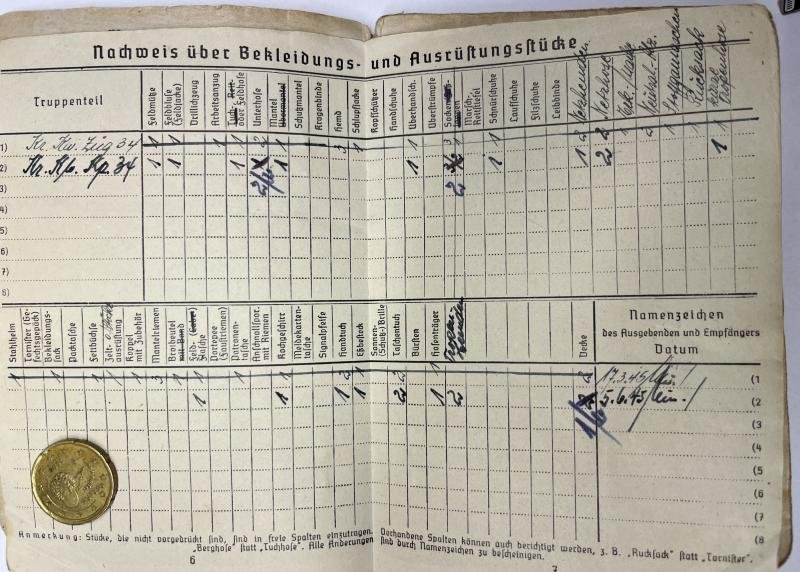 Nachweis über Bekleidungs- und Ausrüstungsstücke
Truppenteil
Feldmütze
Feldbluse (Feldjacke)
Drillichzeug
Arbeitsanzug
Tuch-, Reit- oder Feldhose
Unterhose
Mantel
Übermantel
Schutzmantel
Kragenbinde
Hemd
Schlupfjacke
Kopfschützer
Handschuhe
Überhandsch.
Überstrümpfe
Socken
Marsch-, Reitstiefel
Schnürschuhe
Laufschuhe
Filzschuhe
Leibbinde
Netzhemden
Netzhose
Rucksack
1) Kr. Kw. Zug 34 1 1 1 1 2 1 3 1 1 3 1 1 2
2) Kr. Kw. Kp. 34 1 1 1 1 1 1 2 1
3)
4)
5)
6)
7)
8)
Stahlhelm
Tornister (Gefechtsgepäck)
Bekleidungssack
Packtasche
Fettbüchse
Zeltausrüstung
Koppel mit Zubehör
Mantelriemen
Brotbeutel mit Band
Feldflasche
Portepee (Faustriemen)
Patronentasche
Anschnallspor. mit Riemen
Kochgeschirr
Meldekartentasche
Signalpfeife
Handtuch
Eßbesteck
Sonnen- (Schutz-) Brille
Taschentuch
Bürsten
Hosenträger
Decke
Namenzeichen
des Ausgebenden und Empfängers
Datum
17.3.45 (1
5.6.45 (2
(3
(4
(5
(6
(7
(8
Anmerkung: Stücke, die nicht vorgedruckt sind, sind in freie Spalten einzutragen. Vorhandene Spalten können auch berichtigt werden, z. B. „Rucksack" statt „Tornister",
„Berghose" statt „Tuchhose". Alle Änderungen sind durch Namenzeichen zu bescheinigen.
6
7